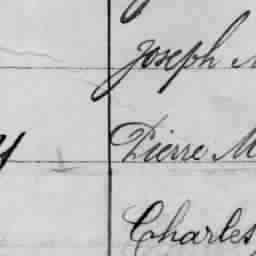 Joseph M
y Pierre M
Charles